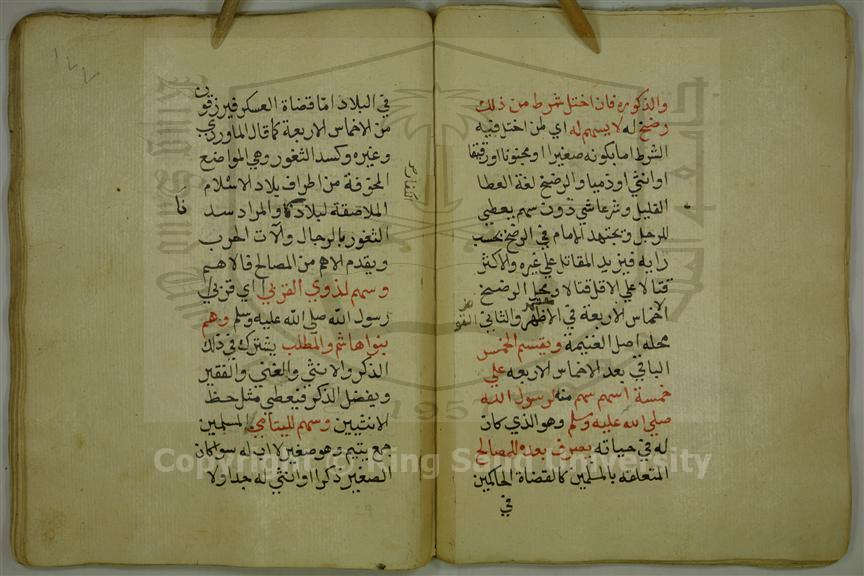 والذكوره فان اختل شرط من ذلك
رضخ له لا يسهم له اي لمن اختل فيه
الشرط اما بكونه صغيرا او مجنونا او رقيقا
او انثي او ذميا والرضخ لغة العطا
القليل وشرعا شي دون سهم يعطي
للرجل ويجتهد الامام في الرضخ بحسب
رايه فيزيد المقاتل علي غيره والاكثر
قتالا علي الاقل قتالا ومحل الرضخ
الاخماس الاربعة في الاظهر والثاني
محله اصل الغنيمة ويقسم الخمس
الباقي بعد الاخماس الاربعه علي
خمسة اسهم سهم منه لرسول الله
صلي الله عليه وسلم وهو الذي كان
له في حياته يصرف بعده للمصالح
المتعلقه بالمسلمين كالقضاة الحاكمين
في
١٤٤
في البلاد اما قضاة العسكر فيرزقون
من الاخماس الاربعة كما قال الماوردي
وغيره وكسد الثغور وهي المواضع
المخوفة من اطراف بلاد الاسلام
الملاصقة لبلاد والمراد سد
الثغور بالرجال وآلات الحرب
ويقدم الاهم من المصالح فالاهم
وسهم لذوي القربي اي قربي
رسول الله صلي الله عليه وسلم وهم
بنوا هاشم والمطلب يشترك في ذلك
الذكر والانثي والغني والفقير
ويفضل الذكر فيعطي مثل حظ
الانثيين وسهم لليتامي المسلمين
جمع يتيم وهو صغير لا اب له سوا كان
الصغير ذكرا او انثي له جد اولا
Copyright © King Saud University
1957